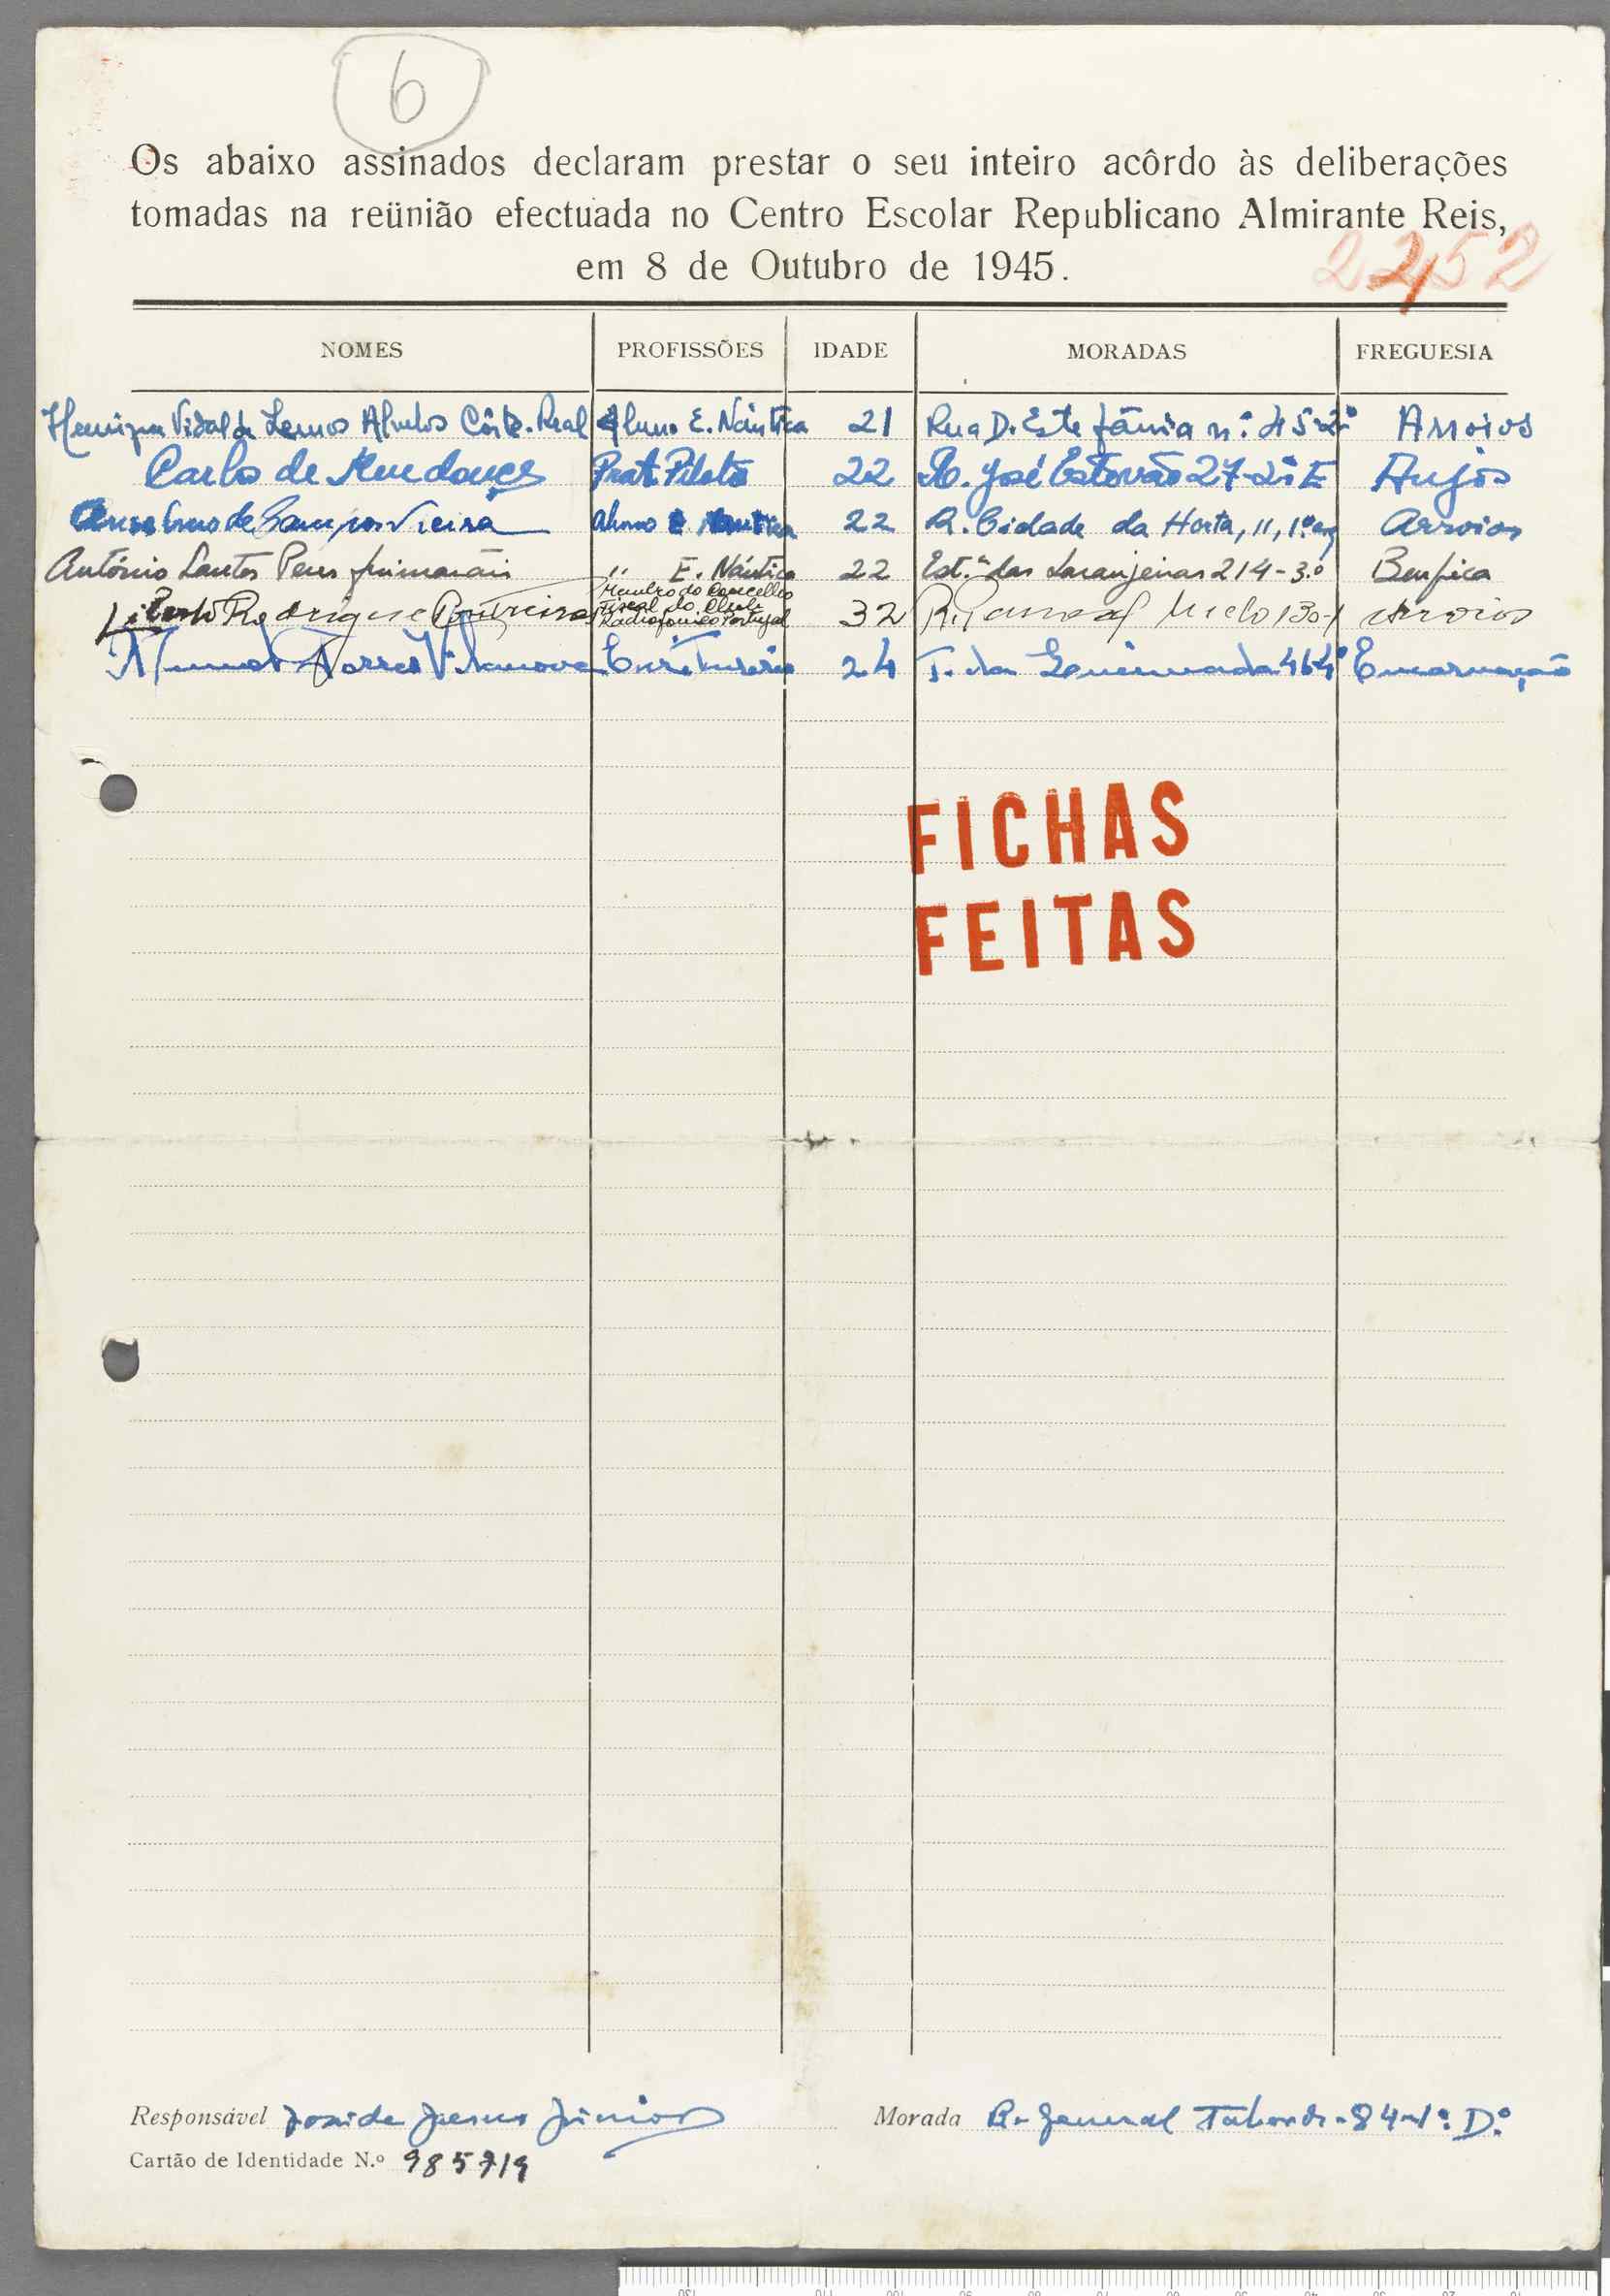 6
Os abaixo assinados declaram prestar o seu inteiro acôrdo às deliberações
tomadas na reünião efectuada no Centro Escolar Republicano Almirante Reis,
em 8 de Outubro de 1945.
2252
NOMES PROFISSÕES IDADE MORADAS FREGUESIA
Henrique Vidal de Lemos Côrte-Real Aluno E. Náutica 21 Rua D. Estefânia n.º 45-2º Arroios
Carlos de Mendonça Prat. Piloto 22 R. José Estevão 27-2º E Anjos
Anselmo de Campos Vieira Aluno E Nautica 22 R. Cidade da Horta, 11, 1º esq Arroios
António Santos Guimarãis " E. Náutica 22 Est.ª das Laranjeiras 214-3.º Benfica
Membro do Concelho
Fiscal do Club
Radiofonico Portugal
Rodrigues 32 Melo Arroios
Torres Vilanova 24 T. da 46-4º Encarnação
FICHAS
FEITAS
Responsável José de Jesus Júnior Morada R. General Taborda-84-1º. Dº.
Cartão de Identidade N.º 985719